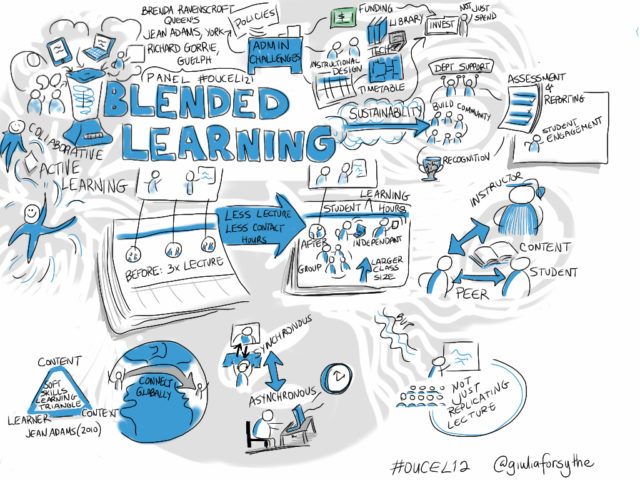 BRENDA RAVENSCROFT
QUEENS
JEAN ADAMS, YORK
RICHARD GORRIE,
GUELPH
PANEL #OUCEL12
BLENDED
LEARNING
POLICIES
ADMIN
CHALLENGES
FUNDING
LIBRARY
TECH
INSTRUCTIONAL
DESIGN
TIMETABLE
INVEST
NOT JUST
SPEND
SUSTAINABILITY
DEPT SUPPORT
BUILD COMMUNITY
RECOGNITION
ASSESSMENT
&
REPORTING
STUDENT
ENGAGEMENT
COLLABORATIVE
ACTIVE
LEARNING
BEFORE: 3x LECTURE
LESS LECTURE
LESS CONTACT
HOURS
LEARNING
STUDENT HOURS
AFTER
INDEPENDANT
GROUP
LARGER
CLASS
SIZE
INSTRUCTOR
CONTENT
STUDENT
PEER
CONTENT
SOFT
SKILLS
LEARNING
TRIANGLE
LEARNER
CONTEXT
JEAN ADAMS (2010)
CONNECT
GLOBALLY
SYNCHRONOUS
ASYNCHRONOUS
NOT
JUST
REPLICATING
LECTURE
#OUCEL12 @giuliaforsythe